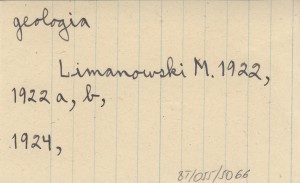 geologia
Limanowski M. 1922,
1922 a, b,
1924,
87/055/5066